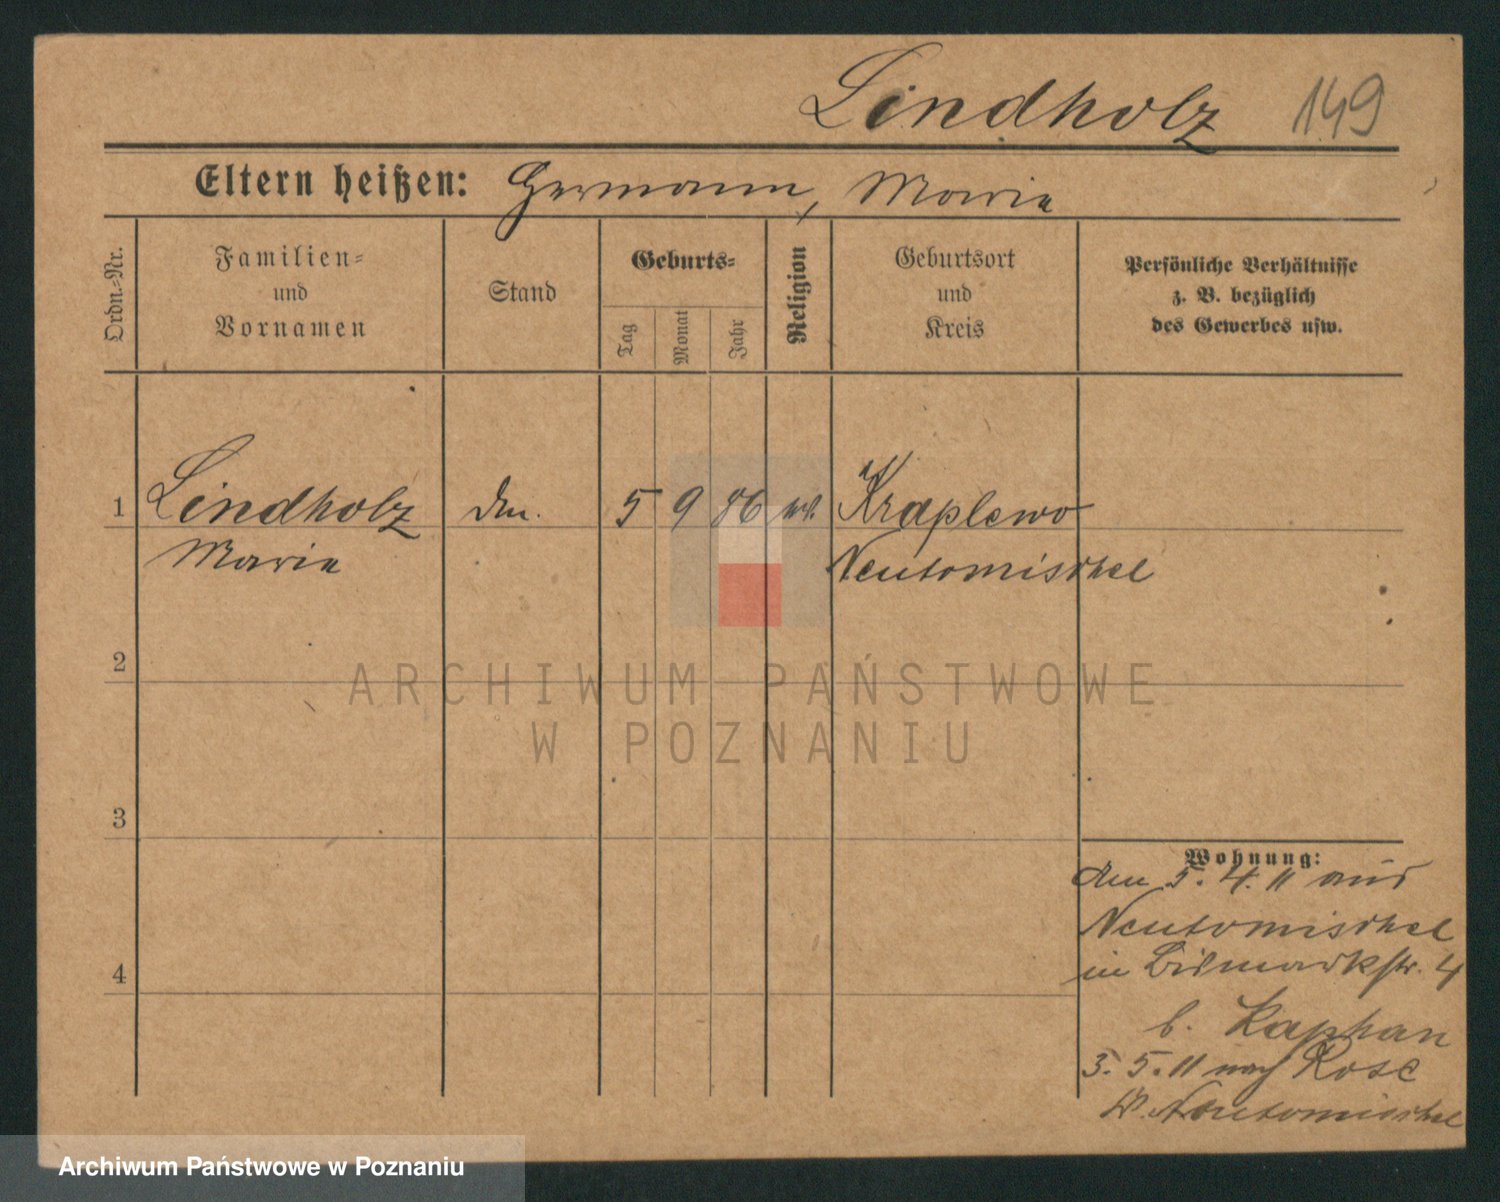 Lindholz 149
Eltern heißen: Hermann, Marie
Ordn.-Nr.
Familien-
und
Vornamen
Stand
Geburts-
Tag
Monat
Jahr
Religion
Geburtsort
und
Kreis
Persönliche Verhältnisse
z. B. bezüglich
des Gewerbes usw.
1 Lindholz 5 9 86 Kraplewo
Marie Neutomischel
2
3
4
Wohnung:
den 5. 4. 11 aus
Neutomischel
in Bismarkstr. 4
b. Kaphan
3. 5. 11 nach Rose
Neutomischel
ARCHIWUM PAŃSTWOWE
W POZNANIU
Archiwum Państwowe w Poznaniu